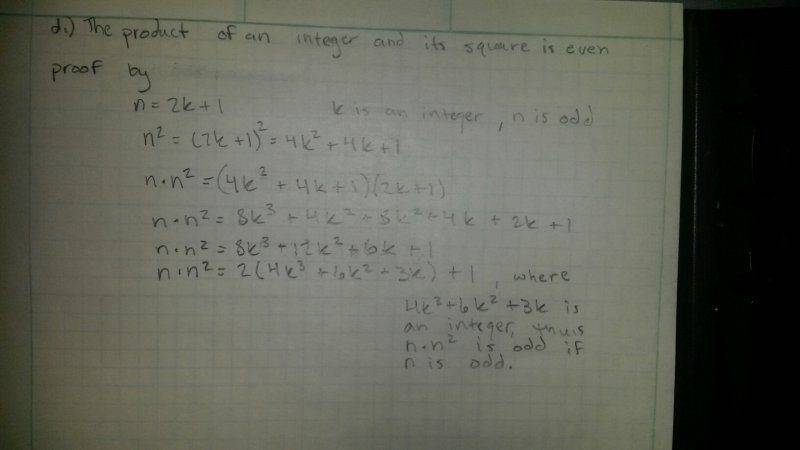 d.) The product of an integer and its square is even
proof by
n = 2k+1 k is an integer, n is odd
n² = (2k+1)² = 4k² + 4k + 1
n·n² = (4k² + 4k + 1)(2k+1)
n·n² = 8k³ + 4k² + 8k² + 4k + 2k + 1
n·n² = 8k³ + 12k² + 6k + 1
n·n² = 2(4k³ + 6k² + 3k) + 1, where
4k³ + 6k² + 3k is
an integer, thus
n·n² is odd if
n is odd.